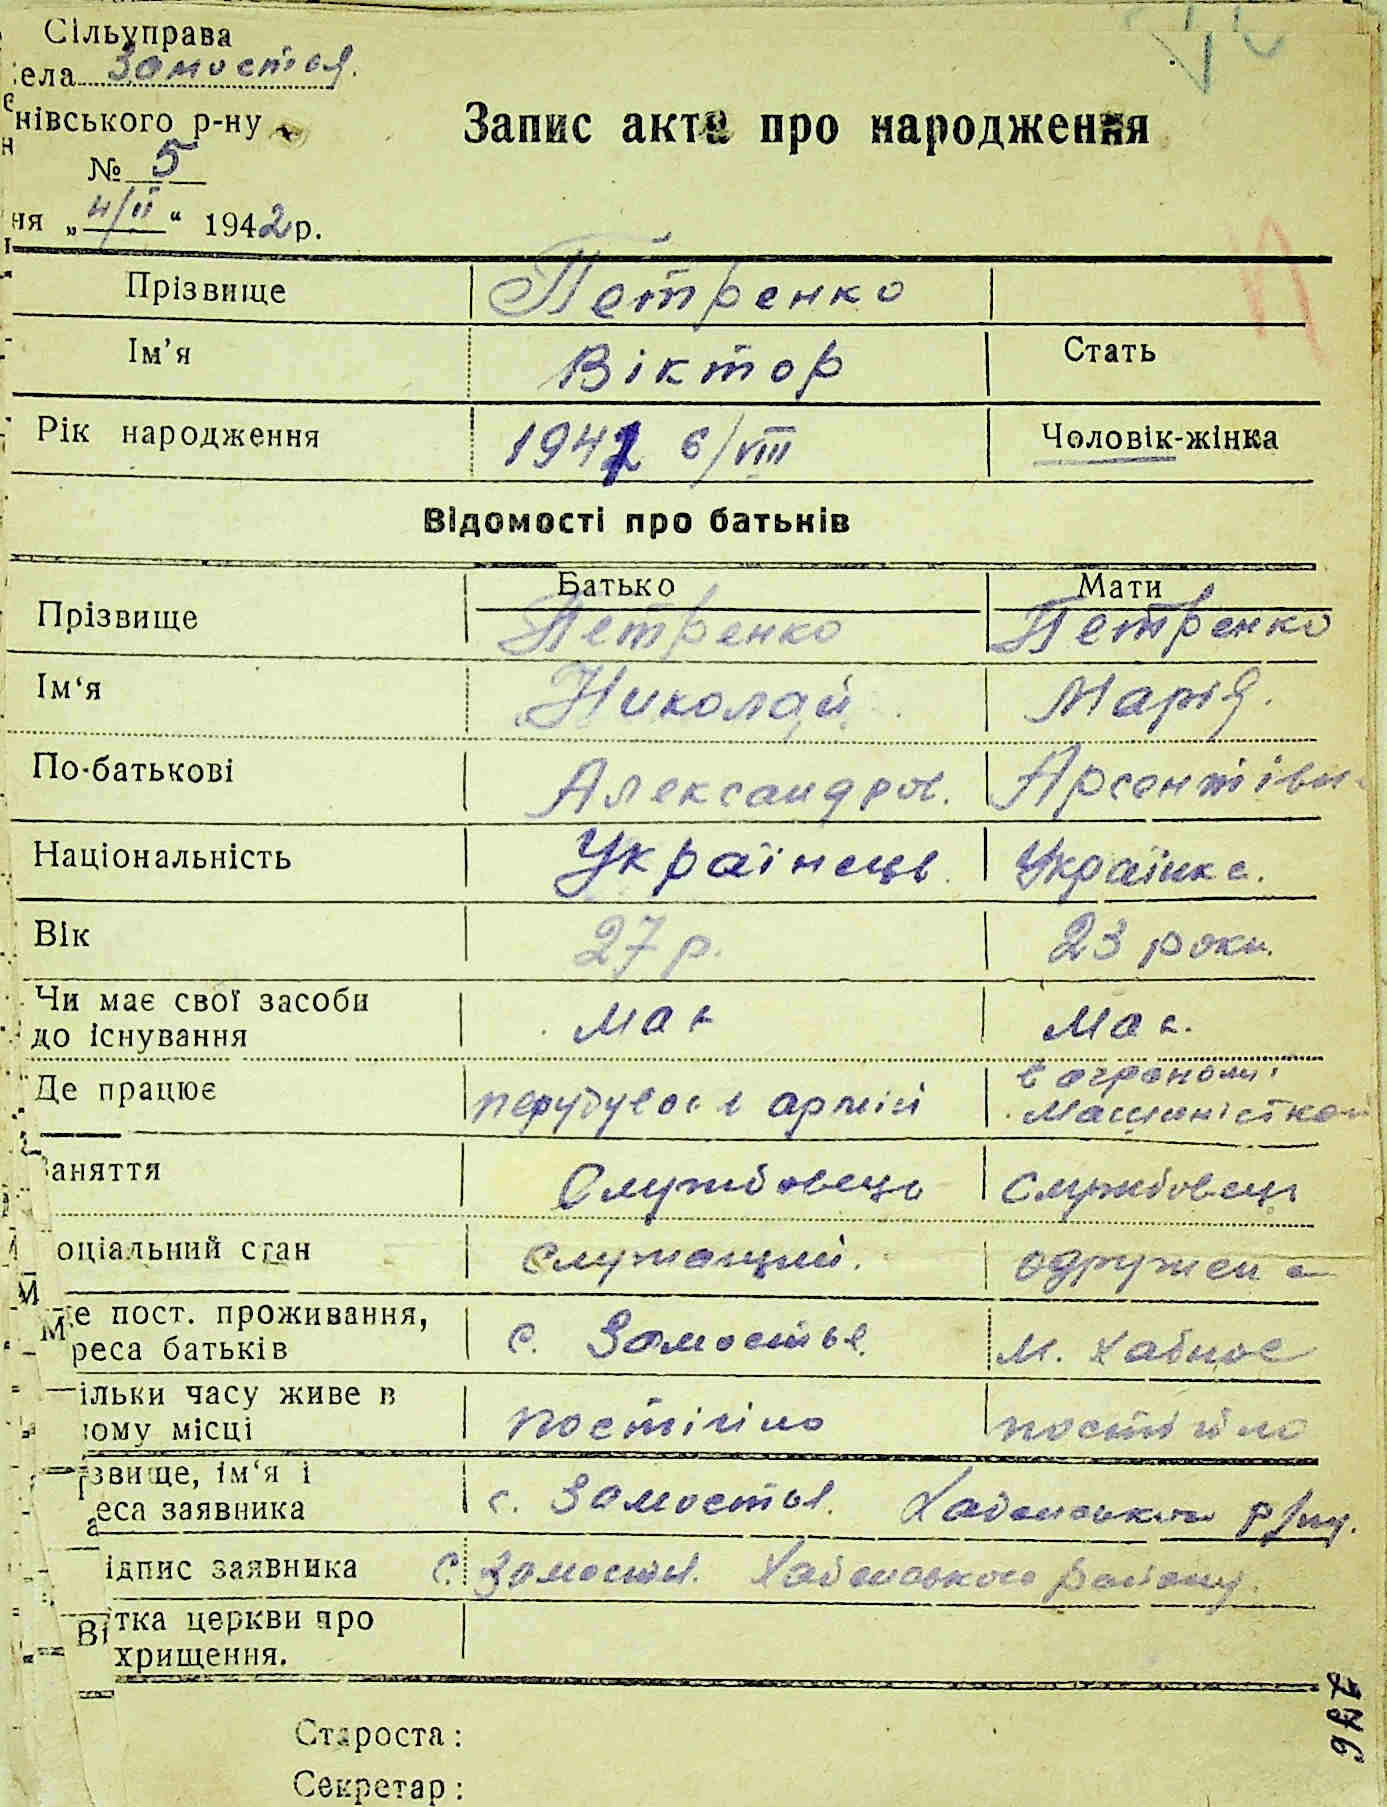 Сільуправа
села Замостья.
нівського р-ну
№ 5
ня „4/ІІ“ 1942 р.
Запис акта про народження
Прізвище Петренко
Ім’я Віктор Стать
Рік народження 1941 6/VIII Чоловік-жінка
Відомості про батьків
Батько Мати
Прізвище Петренко Петренко
Ім‘я Николай Марія.
По-батькові Александров. Арсентіівн
Національність Українець Українка.
Вік 27 р. 23 роки.
Чи має свої засоби має має.
до існування
Де працює в армії в агрономі
Машиністкой
аняття Службовець Службовець
оціальний стан служащий. одружена
е пост. проживання, с. Замостья. м. Хабное
реса батьків
ільки часу живе в постійно постійно
ому місці
звище, ім‘я і с. Замостья. Хабенського р/ну.
еса заявника
ідпис заявника с. Замостья. Хабенського району.
Ві тка церкви про
хрищення.
Староста:
Секретар: